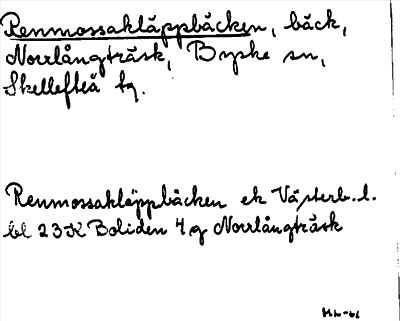 Renmossakläppbäcken, bäck,
Norrlångträsk, Byske sn,
Skellefteå tg.
Renmossakläppbäcken ek Västerb. l.
bl 23K Boliden 4g Norrlångträsk